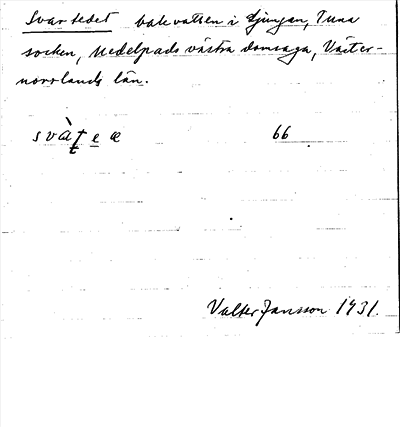 Svartedet bakvatten i Ljungan, Tuna
socken, Medelpads västra domsaga, Väster-
norrlands län.
svàṭeæ 66
Valter Jansson 1931.